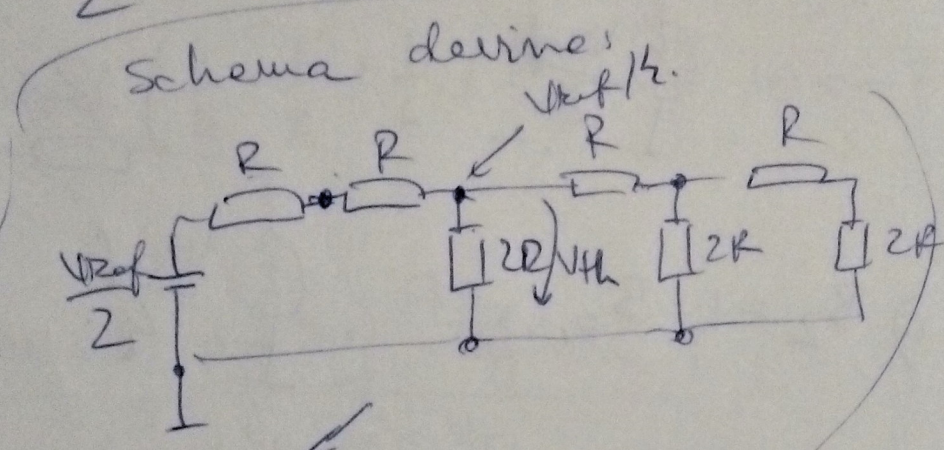 Schema devine:
Vref/4.
R
R
R
R
VRef
2
2R
Vth
2R
2R